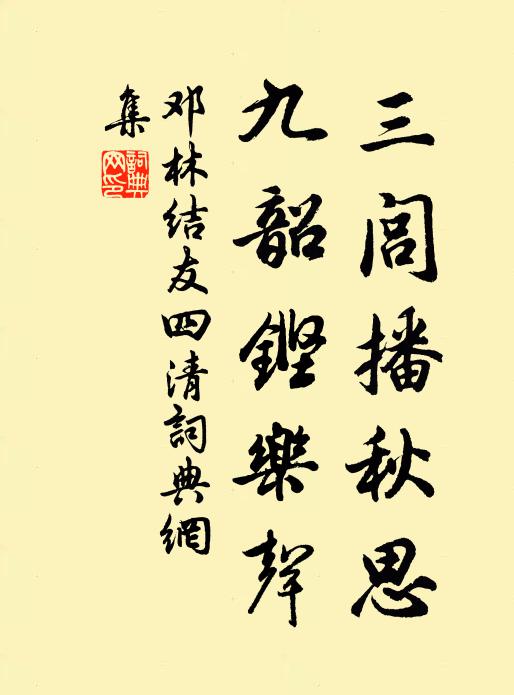 三闾播秋思
九韶鏗樂聲
邓林结友四清詞典網
集
詞典
网印